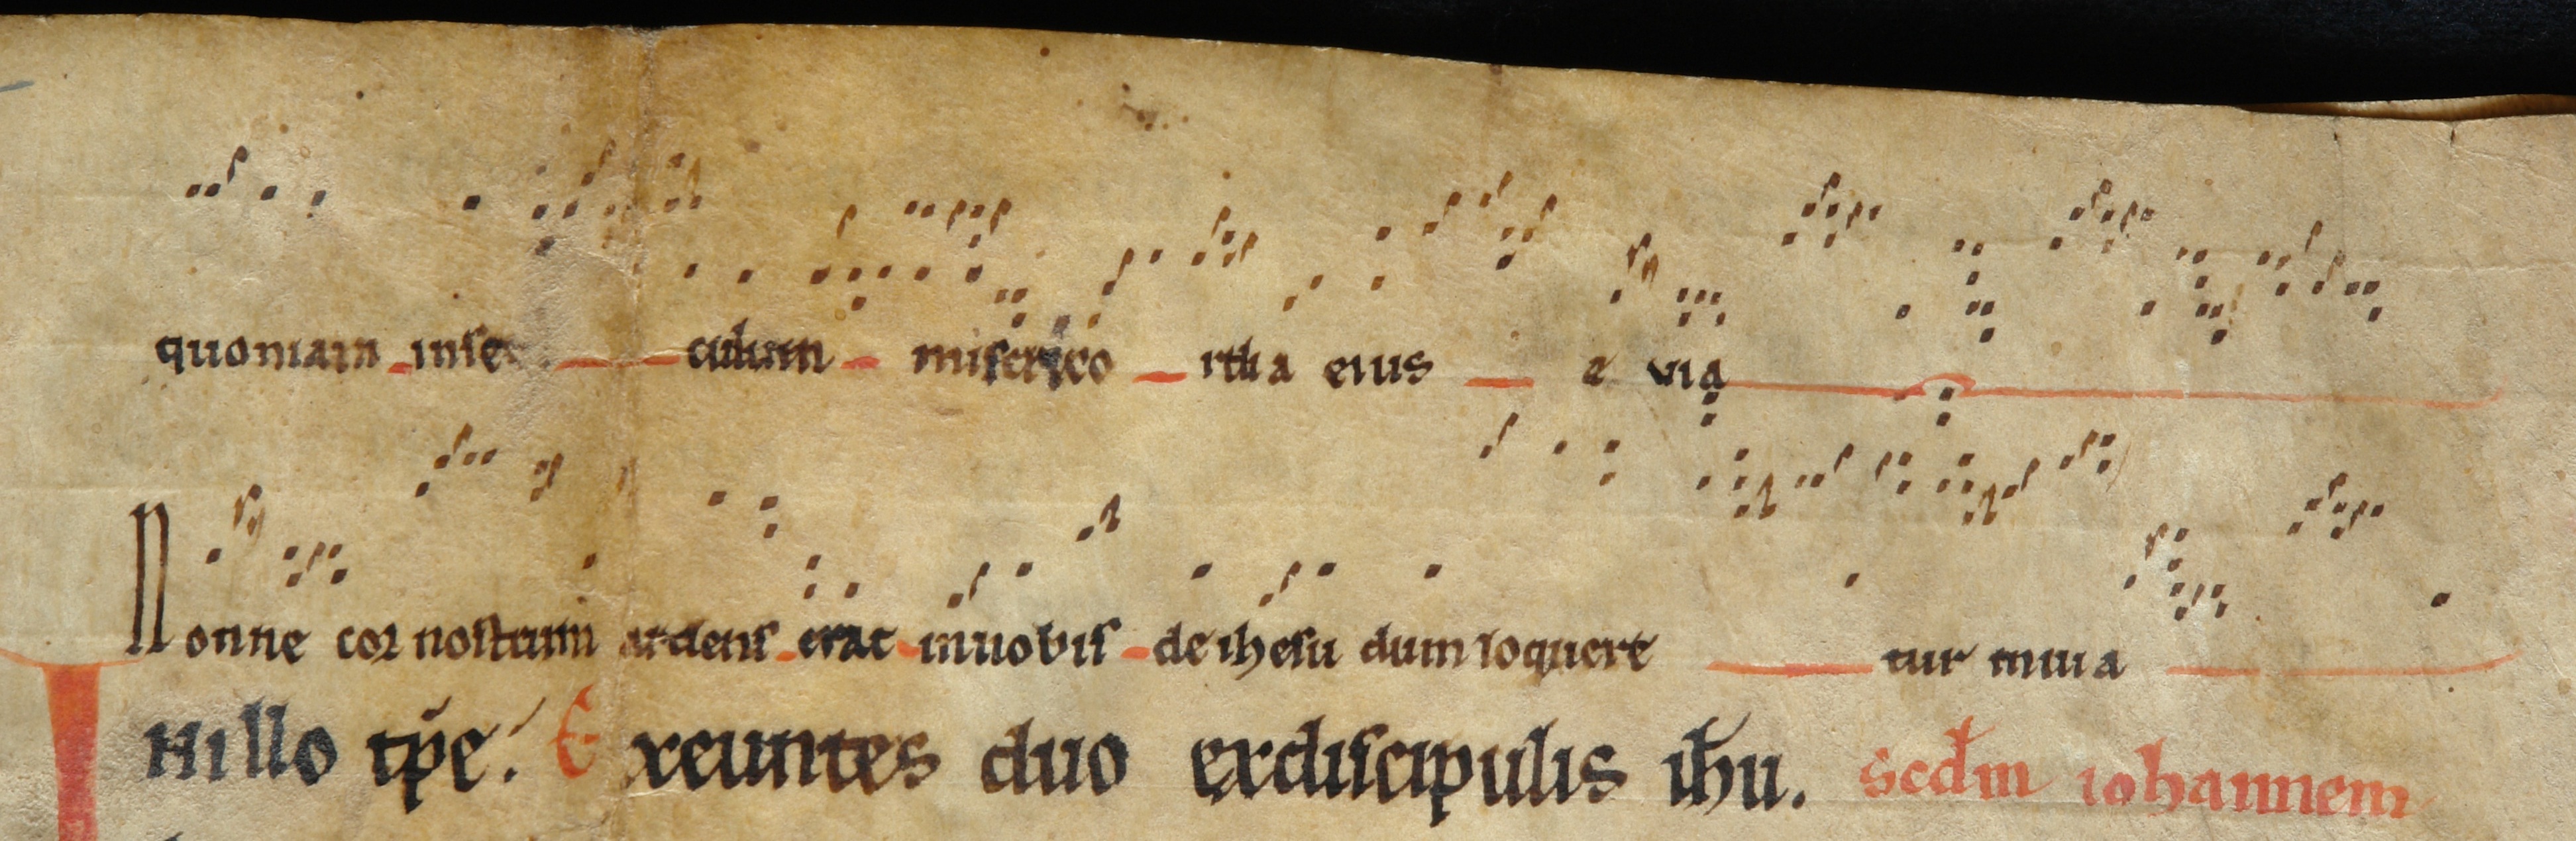 quoniam inseculum misericortha eius a via
Nonne cor nostrum ardens erat innobis de ihesu dum loqueretur inuia
INillo tp̄e. Exeuntes duo exdiscipulis ih̄u. Scd̄m iohannem